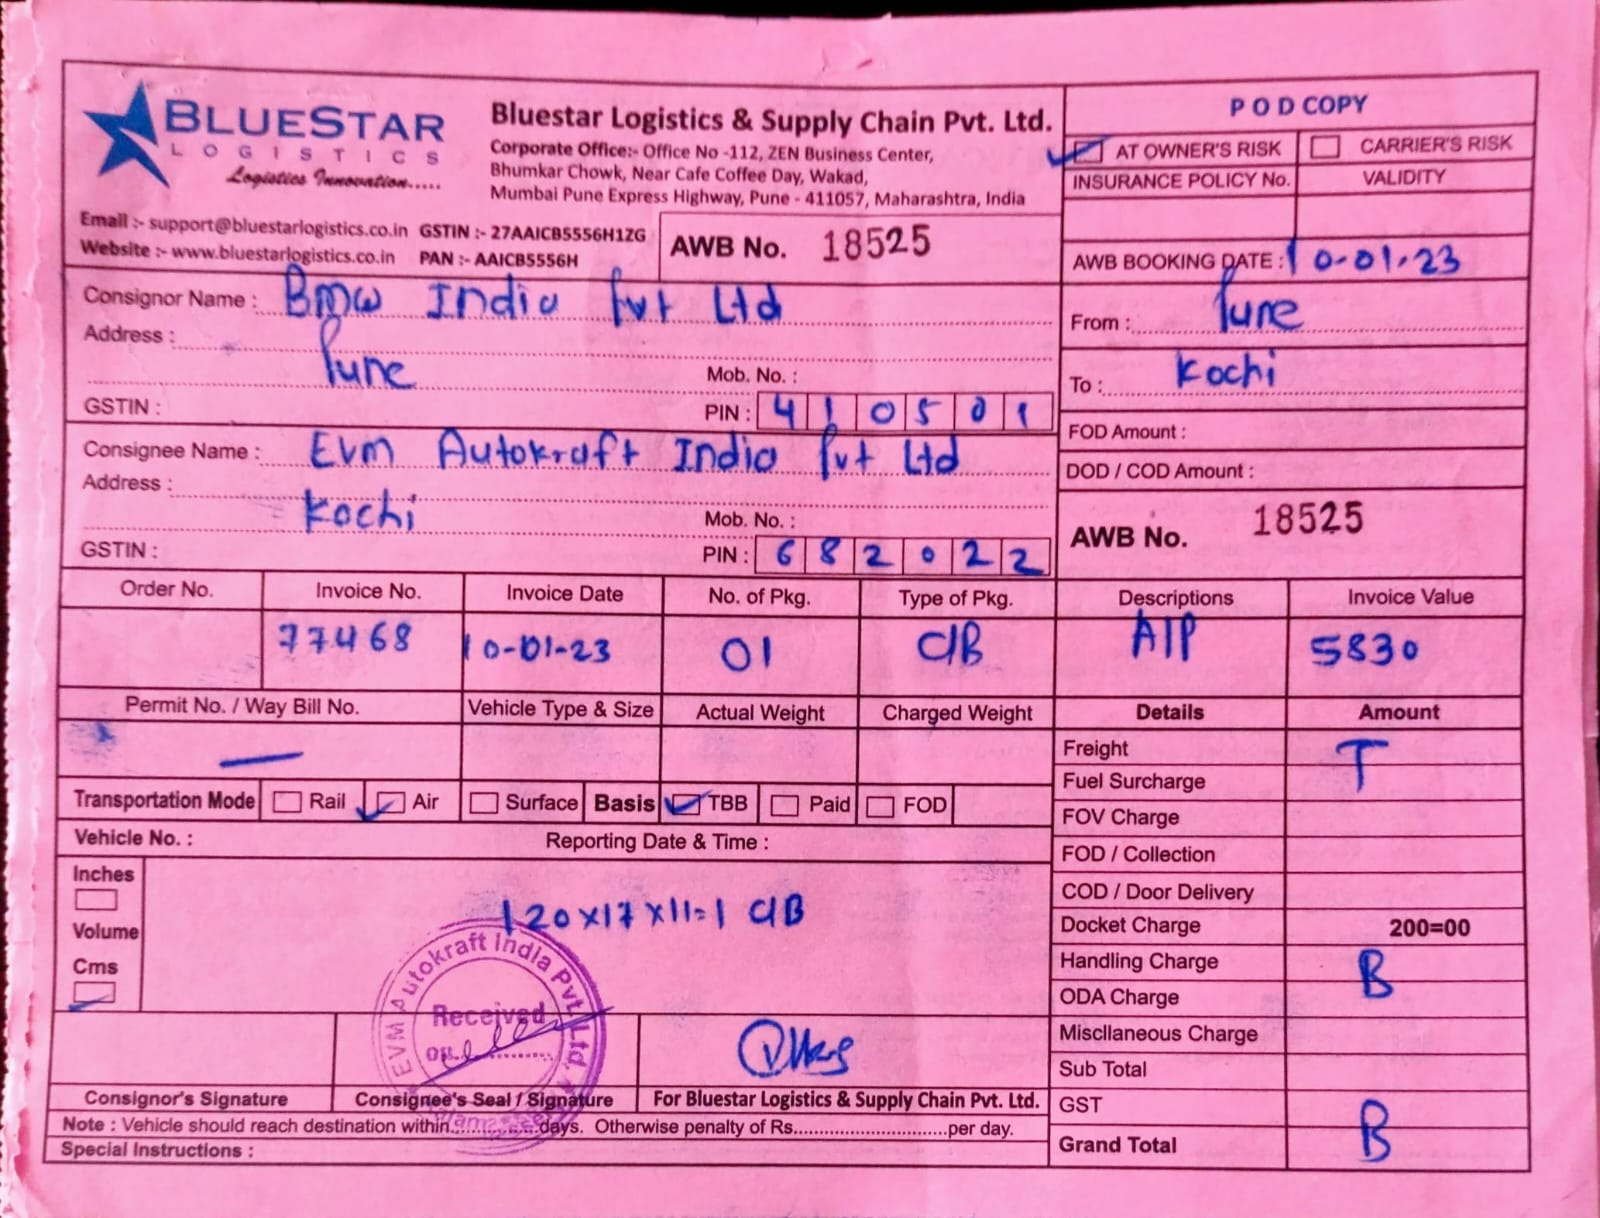 BLUESTAR
LOGISTICS
Logistics Innovation.....
Bluestar Logistics & Supply Chain Pvt. Ltd.
Corporate Office:- Office No -112, ZEN Business Center,
Bhumkar Chowk, Near Cafe Coffee Day, Wakad,
Mumbai Pune Express Highway, Pune - 411057, Maharashtra, India
Email :- support@bluestarlogistics.co.in GSTIN :- 27AAICB5556H1ZG
Website :- www.bluestarlogistics.co.in PAN :- AAICB5556H
AWB No. 18525
POD COPY
AT OWNER'S RISK CARRIER'S RISK
INSURANCE POLICY No. VALIDITY
AWB BOOKING DATE : 10-01-23
From : Pune
To : Kochi
FOD Amount :
DOD / COD Amount :
AWB No. 18525
Consignor Name : Bmw India Pvt Ltd
Address :
Pune Mob. No. :
GSTIN : PIN : 410501
Consignee Name : Evm Autokraft India Pvt Ltd
Address :
Kochi Mob. No. :
GSTIN : PIN : 682022
Order No. Invoice No. Invoice Date No. of Pkg. Type of Pkg. Descriptions Invoice Value
77468 10-01-23 01 C/B A/P 5830
Permit No. / Way Bill No. Vehicle Type & Size Actual Weight Charged Weight Details Amount
—
Transportation Mode Rail Air Surface Basis TBB Paid FOD
Vehicle No. : Reporting Date & Time :
Inches
Volume
Cms
120x17x11=1 C/B
EVM Autokraft India Pvt. Ltd.
Received
on
Consignor's Signature Consignee's Seal / Signature For Bluestar Logistics & Supply Chain Pvt. Ltd.
Note : Vehicle should reach destination within..................days. Otherwise penalty of Rs............................per day.
Special Instructions :
Freight T
Fuel Surcharge
FOV Charge
FOD / Collection
COD / Door Delivery
Docket Charge 200=00
Handling Charge B
ODA Charge
Miscllaneous Charge
Sub Total
GST
Grand Total B